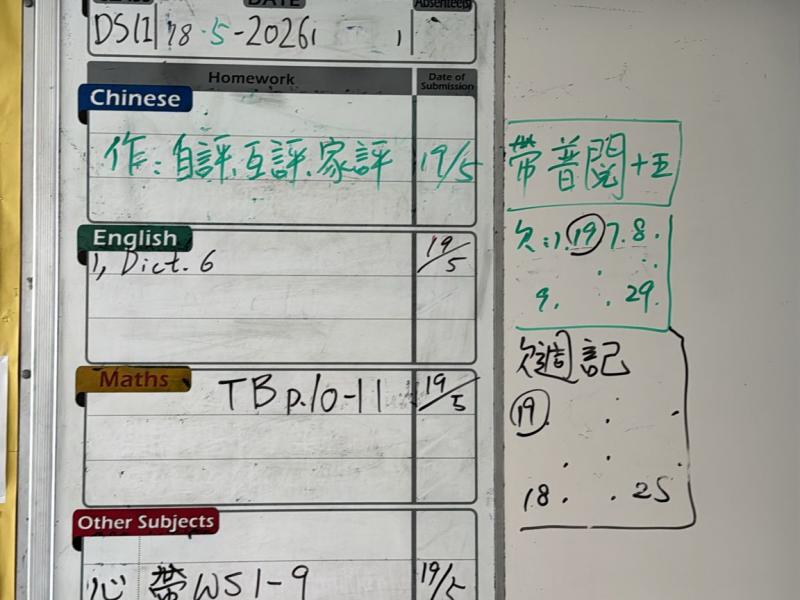 DATE Absentees
18-5-2026
Homework Date of Submission
Chinese
作：自評、互評、家評 19/5
English
1, Dict. 6 19/5
Maths
TB p.10-11 19/5
Other Subjects
心 帶WS1-9 19/5
帶普閱+五
欠：1. 19 7. 8.
9. 29.
欠週記
19
18. 25